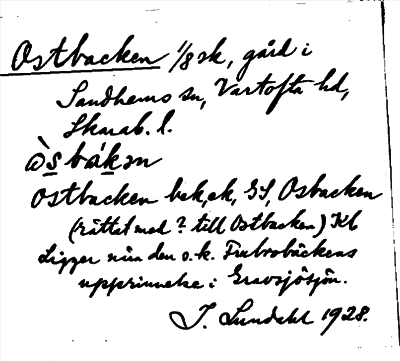 Ostbacken 1/8 sk, gård i
Sandhems sn, Vartofta hd,
Skarab. l.
òs bák ən
Ostbacken bek, ek, GS, Osbacken
(rättet med ? till Ostbacken) Kb
Ligger nära den s.k. Furbrobäckens
upprinnelse i Gravsjösjön.
J. Lundahl 1928.